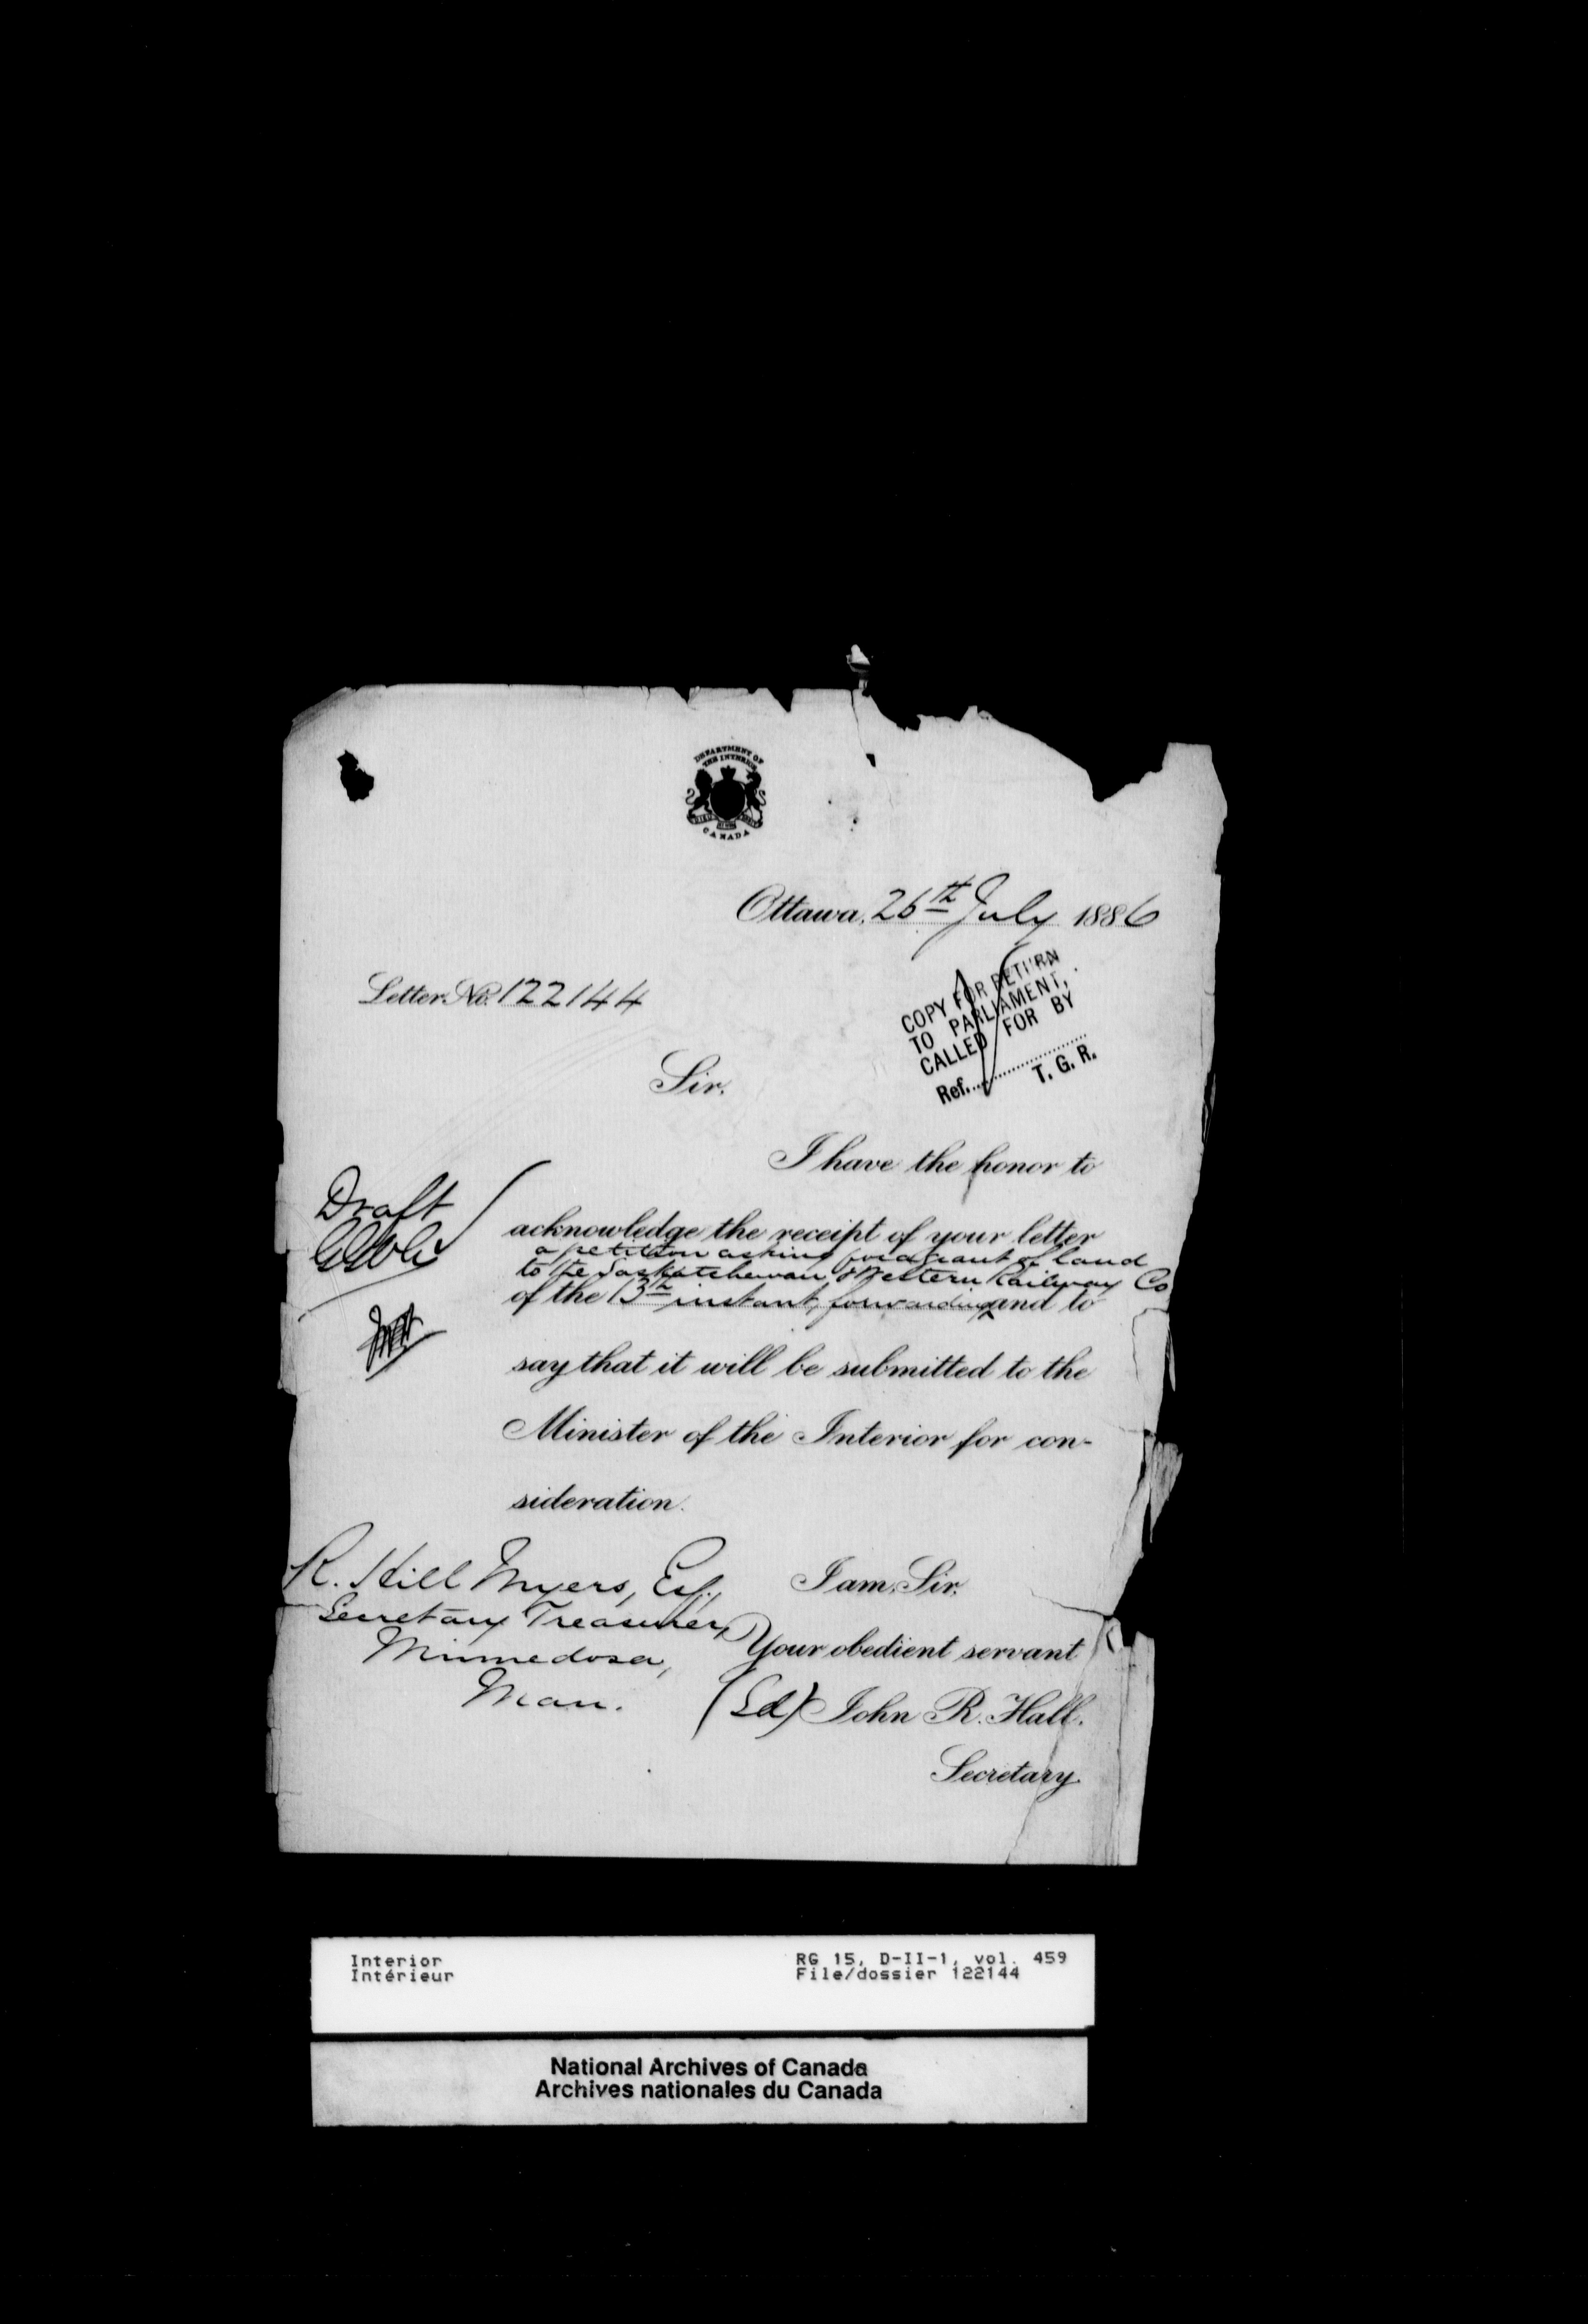 DEPARTMENT OF
THE INTERIOR
CANADA
Ottawa, 26th July 1886
Letter No. 122144
COPY FOR RETURN
TO PARLIAMENT,
CALLED FOR BY
Ref. T. G. R.
Sir,
I have the honor to
Draft
acknowledge the receipt of your letter
a petition asking for a grant of land
to the Saskatchewan & Western Railway Co
of the 13th instant, forwarding ‸ and to
say that it will be submitted to the
Minister of the Interior for con-
sideration.
R. Hill Myers, Esq.,
Secretary Treasurer,
Minnedosa,
Man.
I am, Sir,
Your obedient servant
(Sd) John R. Hall.
Secretary
Interior
Intérieur
RG 15, D-II-1, vol. 459
File/dossier 122144
National Archives of Canada
Archives nationales du Canada